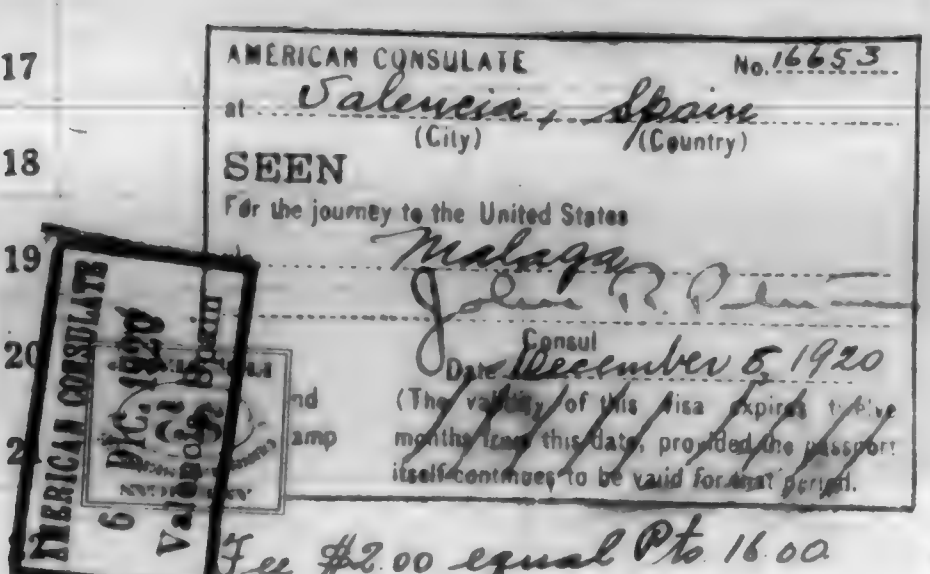 17
AMERICAN CONSULATE No. 16653
at Valencia, Spain
(City) (Country)
18
SEEN
For the journey to the United States
19
Malaga
John R.
Consul
20
Date December 1920
nd
(The validity of this visa expires twelve
amp
months from this date, provided the passport
itself continues to be valid for that period.
AMERICAN CONSULATE
6 DIC. 1920
Valencia Spain
Fee $2.00 equal Pts. 16.00